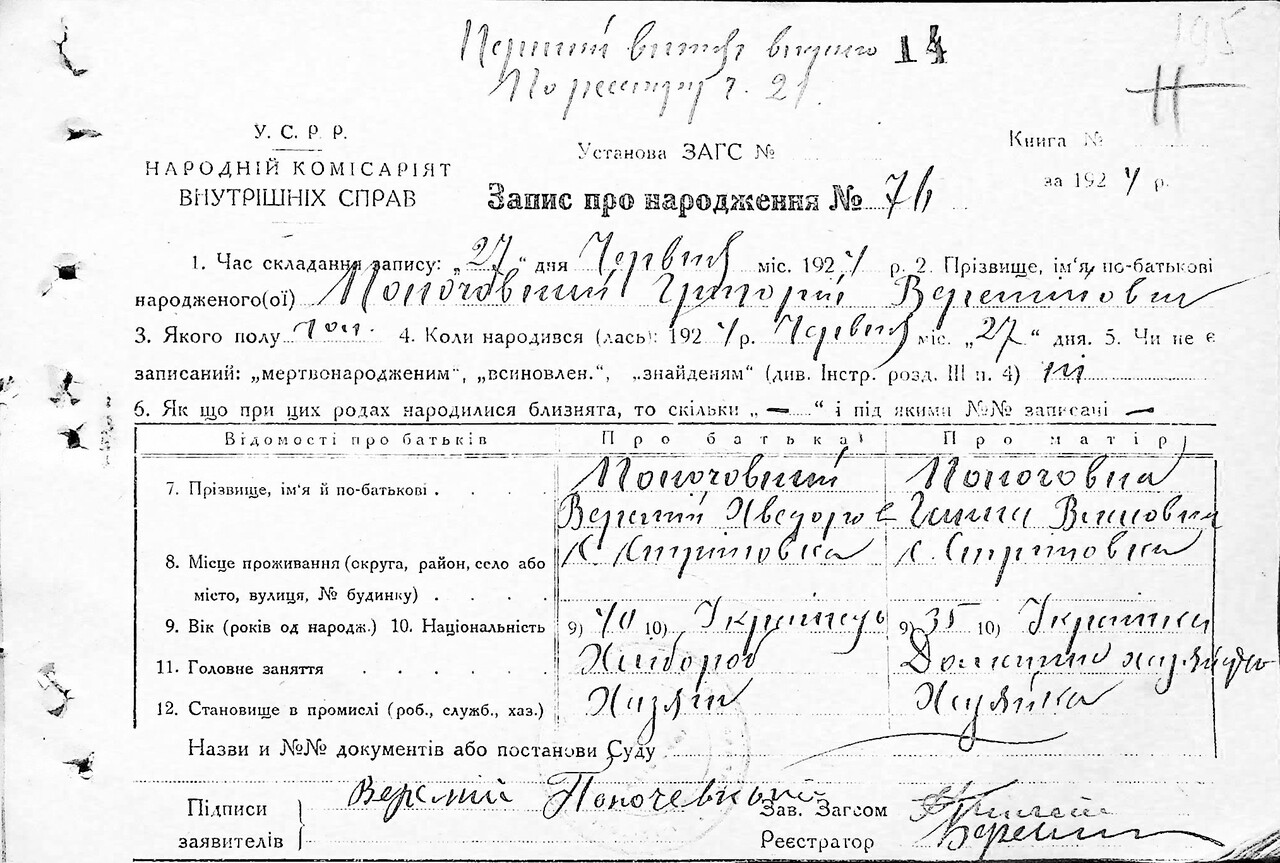 Перший витяг видано 14
По реестру ч. 21.
195
Н
У. С. Р. Р.
НАРОДНІЙ КОМІСАРІЯТ
ВНУТРІШНІХ СПРАВ
Установа ЗАГС №
Книга №
за 1924 р.
Запис про народження № 76
1. Час складання запису: „27“ дня Червня міс. 1924 р. 2. Прізвище, ім'я, по-батькові
народженого(ої) Поночовний Григорій Веремійович
3. Якого полу чол. 4. Коли народився (лась): 1924 р. Червня міс. „27“ дня. 5. Чи не є
записаний: „мертвонародженим“, „всиновлен.“, „знайденям“ (див. Інстр. розд. III п. 4) ні
6. Як що при цих родах народилися близнята, то скільки „—“ і під якими №№ записані —
Відомості про батьків Про батька Про матір
7. Прізвище, ім'я й по-батькові . . . . Поночовний Поночовна
Веремій Хведоров Ганна Івановна
8. Місце проживання (округа, район, село або с. Хитрівовка с. Хитрівовка
місто, вулиця, № будинку) . . . .
9. Вік (років од народж.) 10. Національність 9) 40 10) Українець 9) 35 10) Українка
11. Головне заняття . . . . . Хлібороб Домашнє хазяйство
12. Становище в промислі (роб., служб., хаз.) Хазяін Хазяйка
Назви и №№ документів або постанови Суду
Підписи Веремій Поночевний Зав. Загсом
заявителів Реєстратор